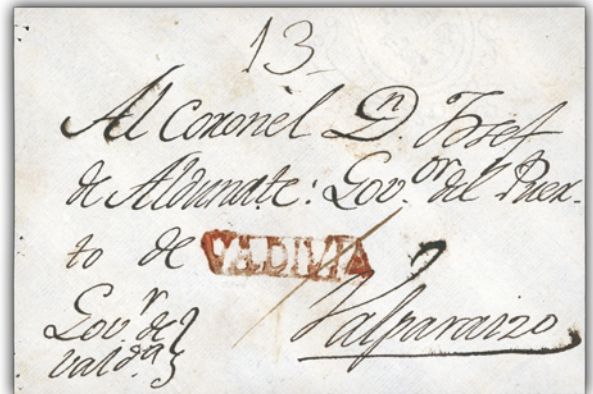 13
Al Coronel Dn. Josef
de Aldunate: Govor. del Puer-
to de VALDIVIA
Valparaizo
Govr. de
Valda.